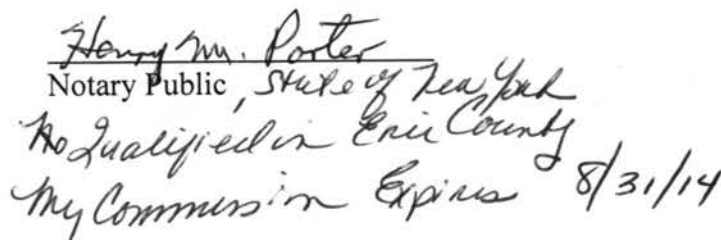 Henry M. Porter
Notary Public, State of New York
No Qualified in Erie County
My Commission Expires 8/31/14